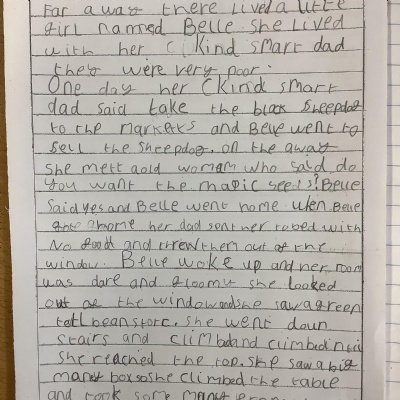 Far away there lived a little
girl named Belle. She lived
with her (kind smart dad
they were very poor.
One day her (kind smart
dad said take the black sheepdog
to the markets and Belle went to
sell the sheepdog. on the away
she mett aold woman who said do
you want the magic see
Belle
said yes and Belle went home wen Belle
home her dad sent her to bed with
No food and threw them out of the
window. Belle woke up and her room
was dare and gloomy she looked
out of the window and she saw a green
tall beanstorc. she went doun
stairs and climb and climbed
she reached the top. she saw a big
maney box so she climbed the table
and took some maney